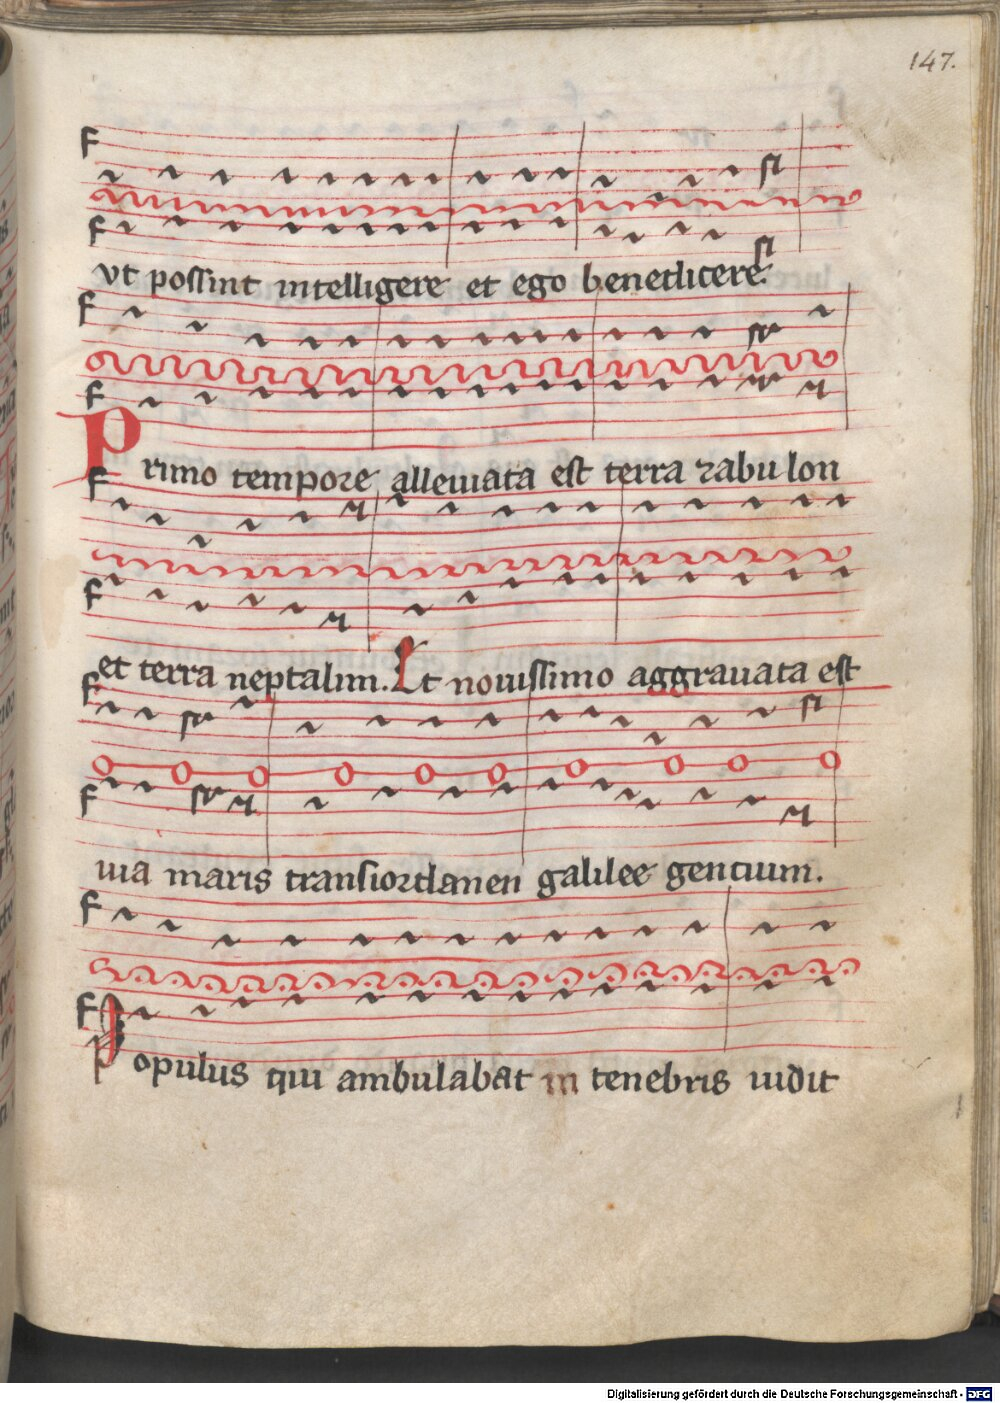 147.
ut possint intelligere et ego benedicere.
Primo tempore alleuiata est terra zabulon
et terra neptalim. Et nouissimo aggrauata est
uia maris transiordanen galilee gentium.
Populus qui ambulabat in tenebris uidit
Digitalisierung gefördert durch die Deutsche Forschungsgemeinschaft - DFG